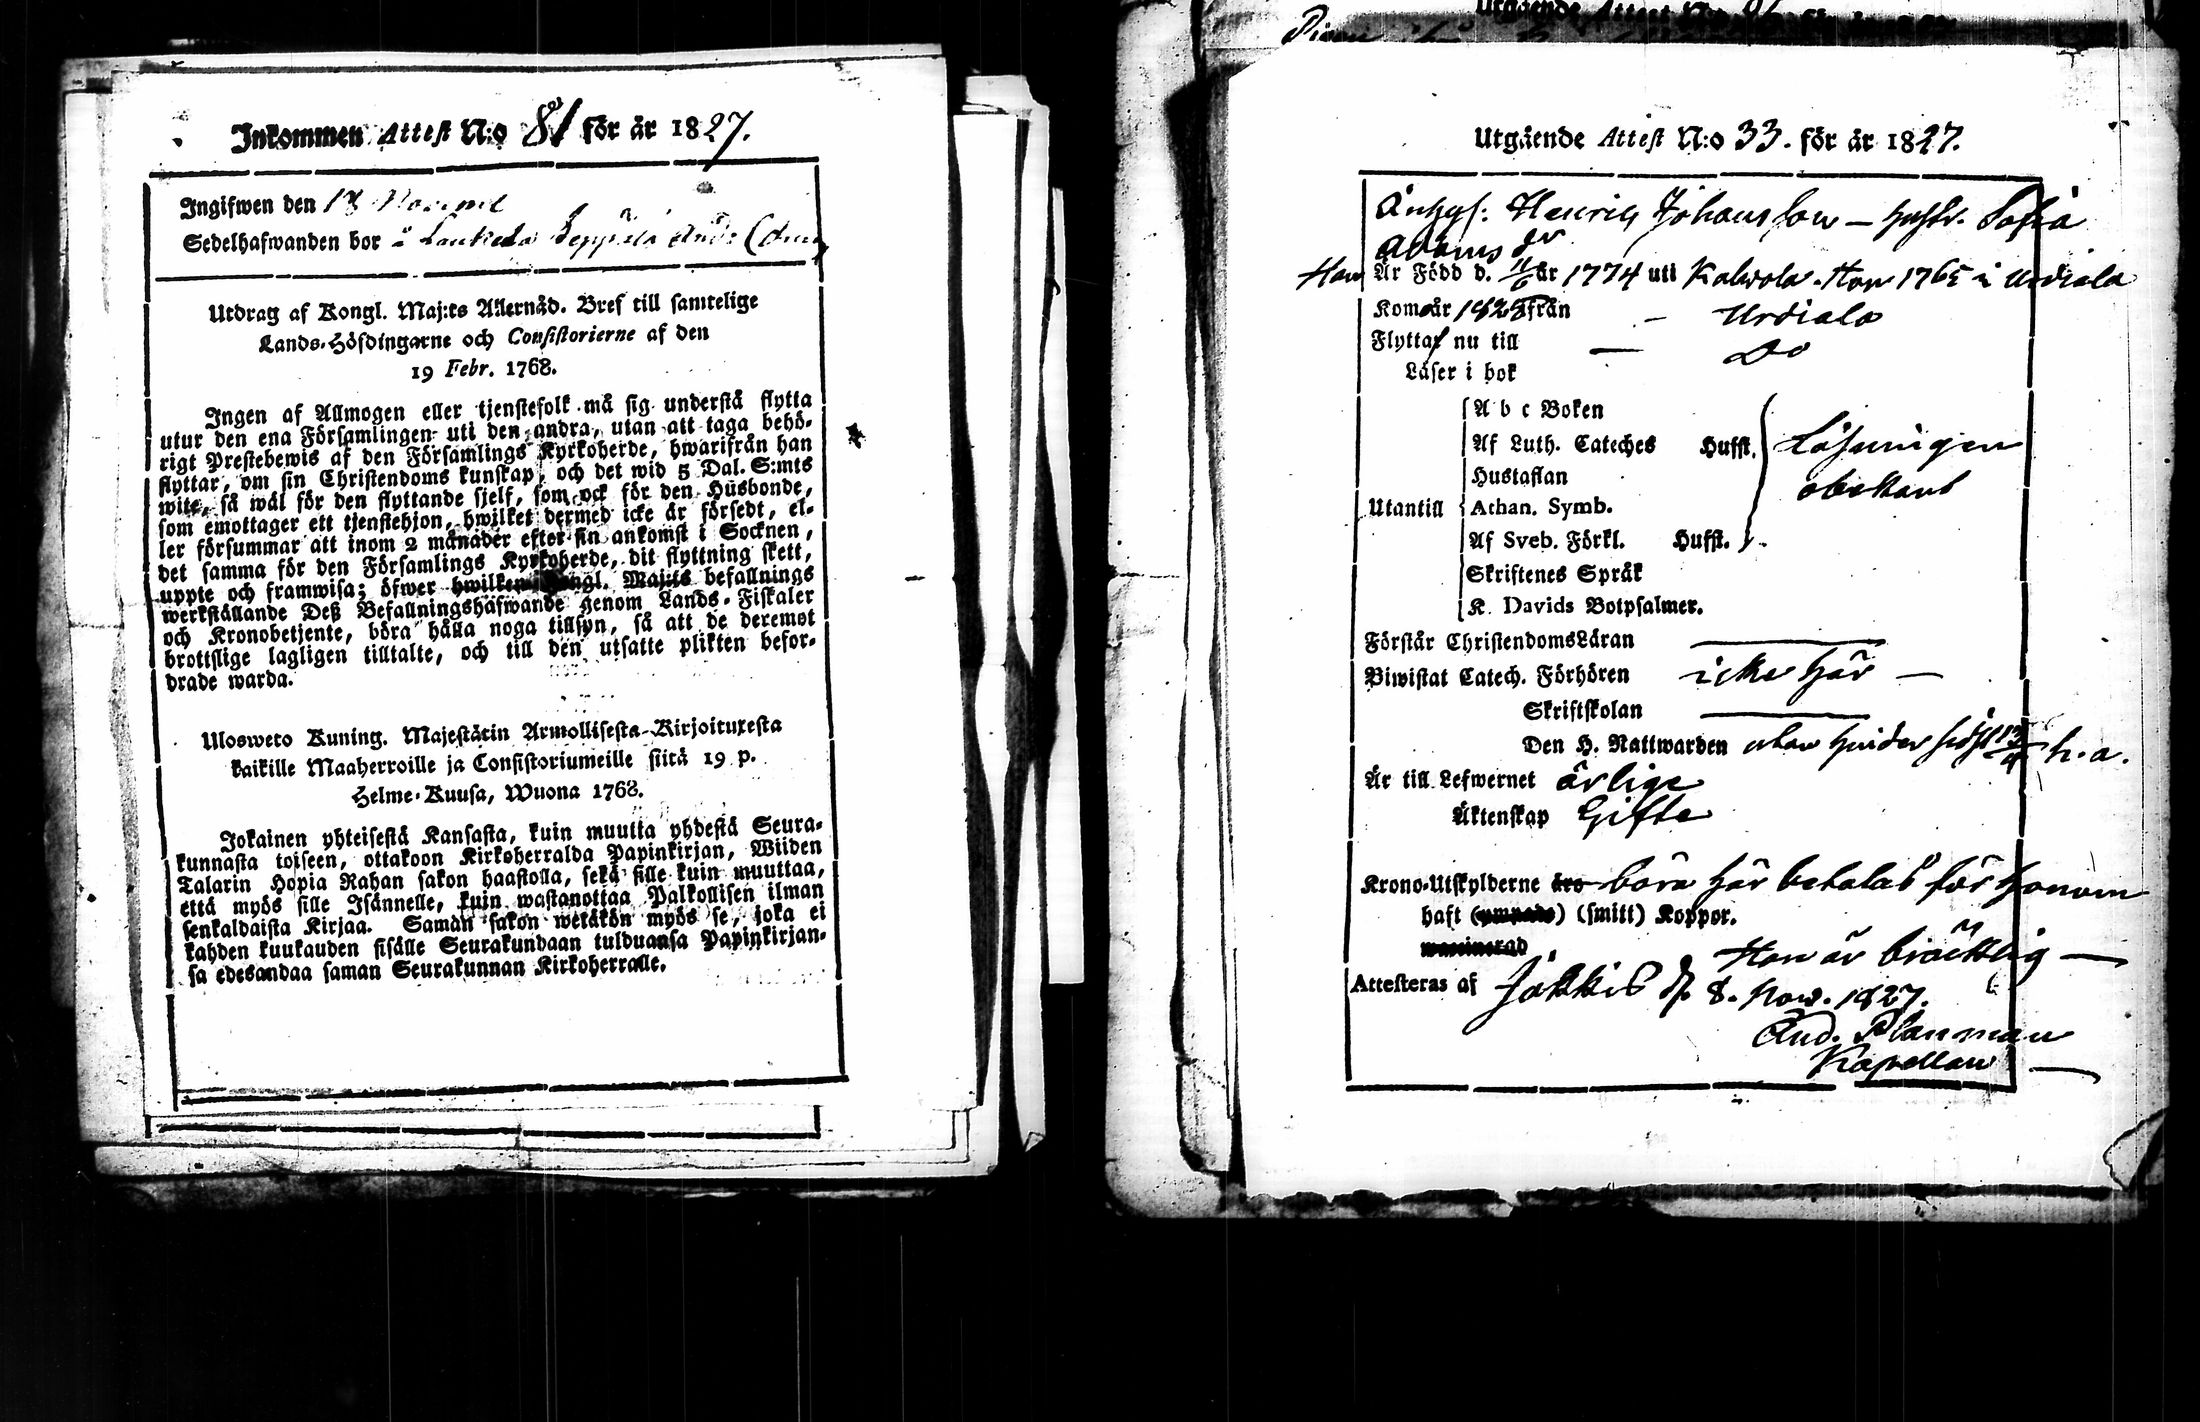 Inkommen Attest N:o 81 för år 1827.
Ingifwen den 18 Novemb
Sedelhafwanden bor å Laukela Seppälä
Utdrag af Kongl. Maj:ts Allernåd. Bref till samtelige
Lands-Höfdingarne och Consistorierne af den
19 Febr. 1768.
Ingen af Allmogen eller tjenstefolk må sig understå flytta
utur den ena Församlingen uti den andra, utan att taga behö-
rigt Prestebewis af den Församlings Kyrkoherde, hwarifrån han
flyttar, om sin Christendoms kunskap, och det wid 5 Dal. S:mts
wite, så wäl för den flyttande sjelf, som ock för den Husbonde,
som emottager ett tjenstehjon, hwilket dermed icke är försedt, el-
ler försummar att inom 2 månader efter sin ankomst i Socknen,
det samma för den Församlings Kyrkoherde, dit flyttning skett,
uppte och framwisa; öfwer hwilken Kongl. Maj:ts befallnings
werkställande Deß Befallningshafwande genom Lands-Fiskaler
och Kronobetjente, böra hålla noga tillsyn, så att de deremot
brottslige lagligen tilltalte, och till den utsatte plikten befor-
drade warda.
Ulosweto Kuning. Majestätin Armollisesta Kirjoituxesta
kaikille Maaherroille ja Consistoriumeille siitä 19 p.
Helme-Kuusa, Wuona 1768.
Jokainen yhteisestä Kansasta, kuin muutta yhdestä Seura-
kunnasta toiseen, ottakoon Kirkoherralda Papinkirjan, Wiiden
Talarin Hopia Rahan sakon haastolla, sekä sille kuin muuttaa,
että myös sille Isännelle, kuin wastanottaa Palkollisen ilman
senkaldaista Kirjaa. Saman sakon wetäkön myös se, joka ei
kahden kuukauden sisälle Seurakundaan tulduansa Papinkirjan-
sa edesandaa saman Seurakunnan Kirkoherralle.
Utgående Attest N:o 33. för år 1827.
Henric Johansson – hustr. Sofia
Adams dr
Han Är Född d. 11/6 år 1774 uti Kalvola. Hon 1765 i Urdiala
Kom år från – Urdiala
Flyttar nu till — Do
Läser i bok
A b c Boken
Af Luth. Cateches Hufst. Läsningen
Hustaflan obekant
Utantill Athan. Symb.
Af Sveb. Förkl. Hufst.
Skriftenes Språk
K. Davids Botpsalmer.
Förstår ChristendomsLäran —
Biwistat Catech. Förhören icke här —
Skriftskolan —
Den H. Nattwarden utan hinder sidst h.a.
Är till Lefwernet ärlige
Äktenskap Gifte
Krono-Utskylderne äro böra här betalas för honom
haft (ympade) (smitt) Koppor.
waccinerad
Han är bräcklig —
Attesteras af Jokkis d. 8. Nov. 1827.
And. Planman
Kapellan —